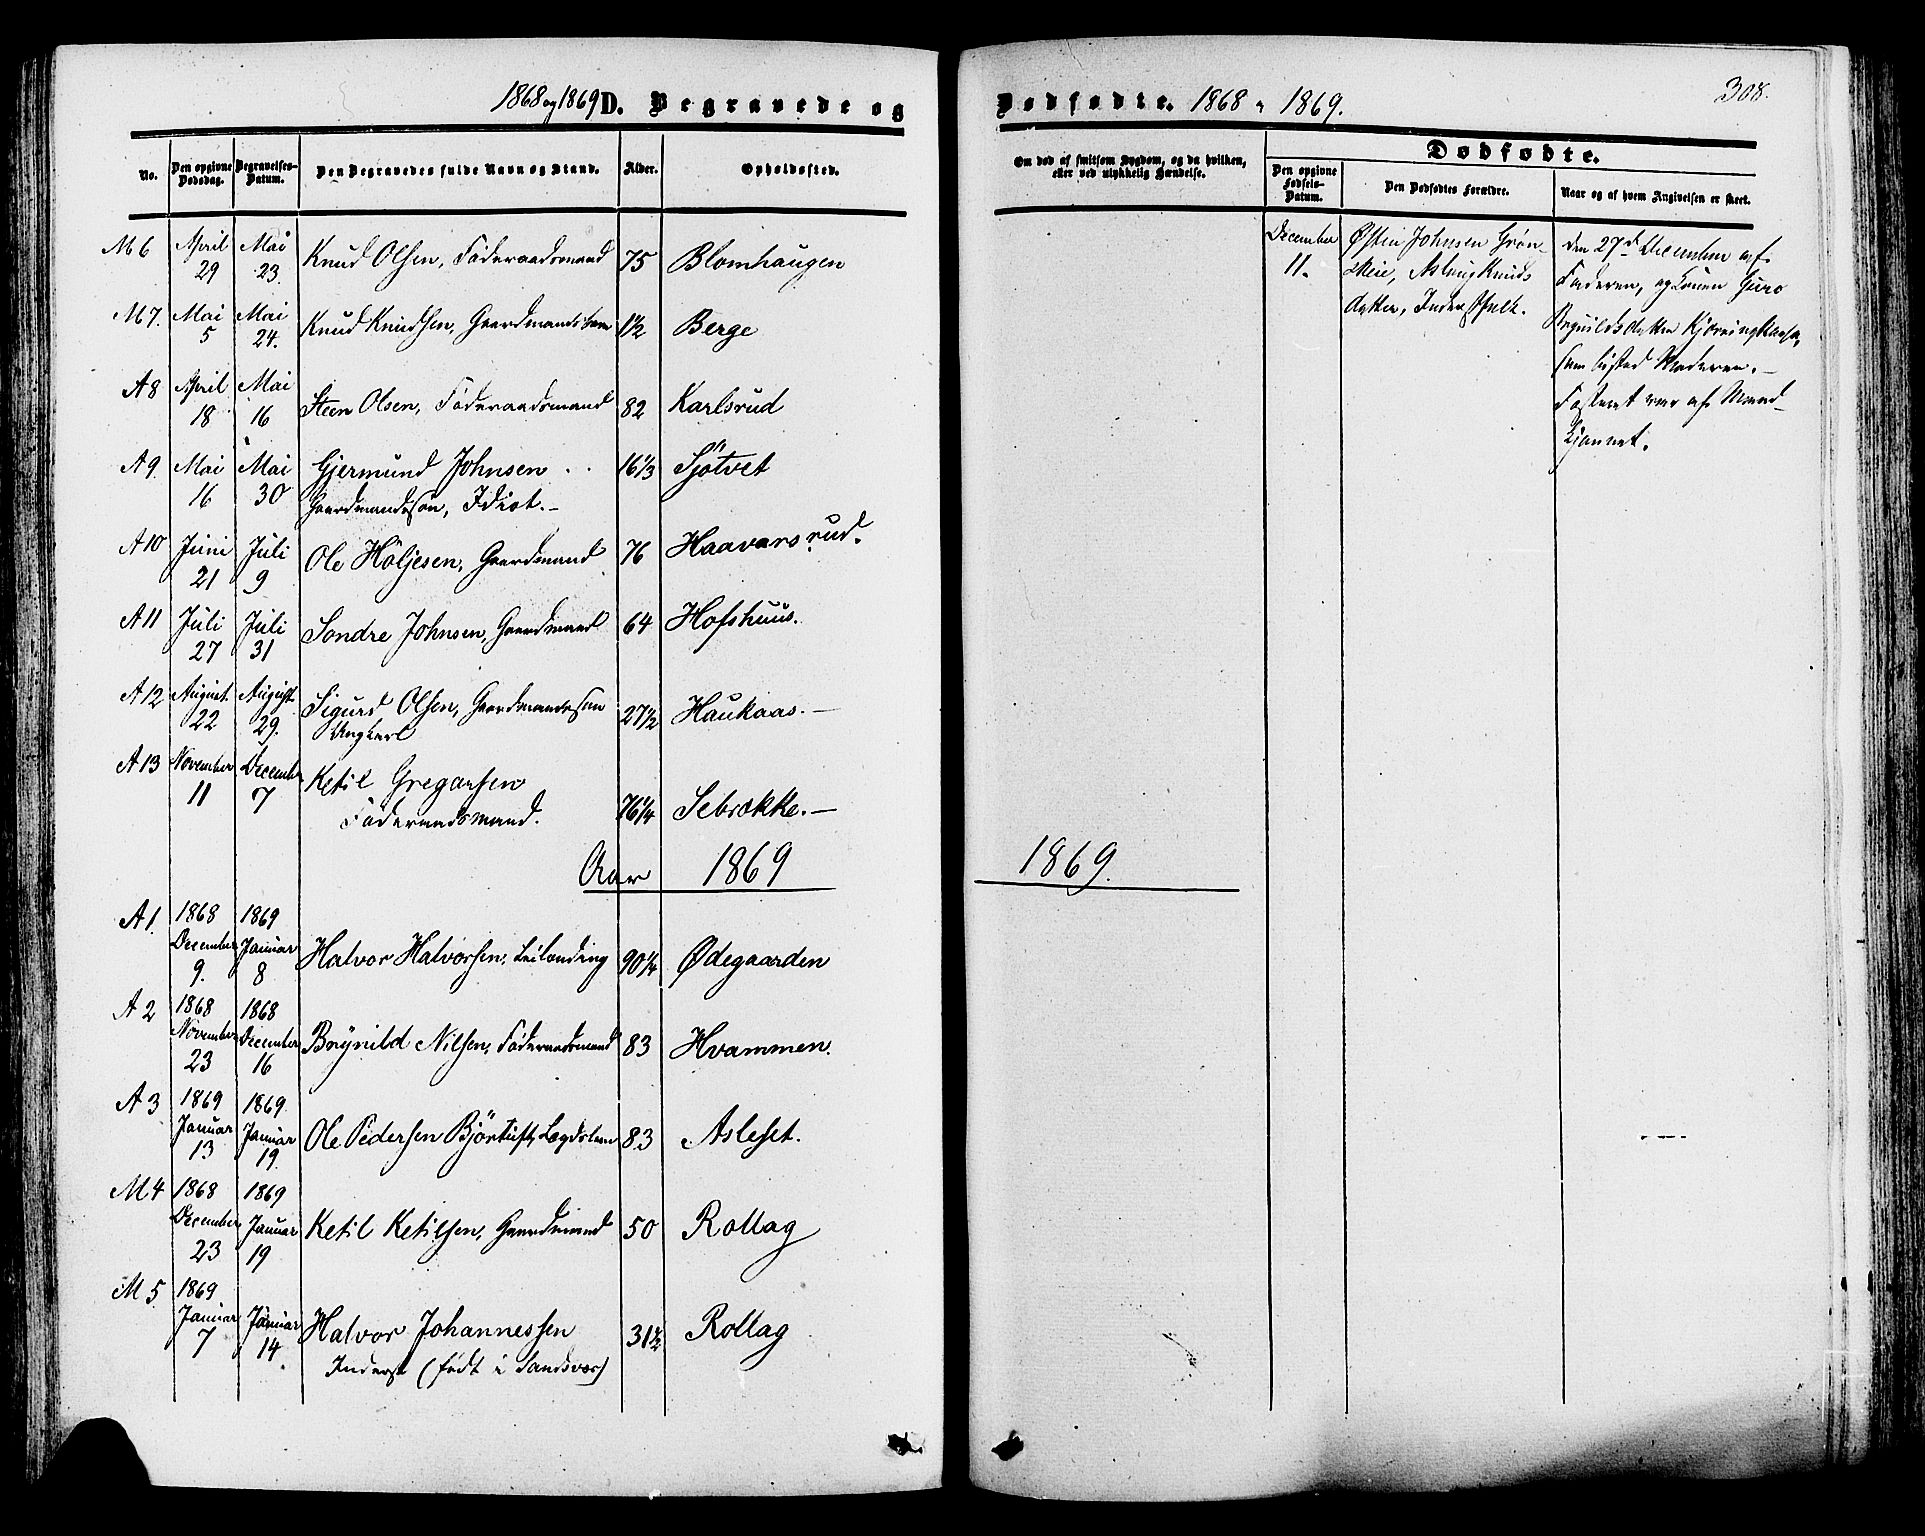 1868 og 1869 D. Begravede og
No.
Den opgivne Dødsdag.
Begravelses-Datum.
Den Begravedes fulde Navn og Stand.
Alder.
Opholdssted.
M 6 April 29 Mai 23. Knud Olsen, Föderaadsmand 75 Blomhaugen
M 7. Mai 5 Mai 24. Knud Knudsen, Gaardmandssøn 1½ Berge
A 8 April 18 Mai 16 Steen Olsen, Föderaadsmand 82 Karlsrud
A 9. Mai 16 Mai 30 Gjermund Johnsen 16 1/3 Sjötvet
Gaardmandssøn, Idiot.-
A 10 Juni 21 Juli 9 Ole Höljesen, Gaardmand 76 Haavarsrud.
A 11 Juli 27 Juli 31 Sondre Johnsen, Gaardmand 64 Hofshuus.
A 12 August. 22 August 29. Sigurd Olsen, Gaardmandssøn 27½ Haukaas.-
Ungkarl
A 13 November 11 December 7 Ketil Gregarsen 76¼ Sebrække.-
Föderaadsmand.
Aar 1869
A 1. 1868 December 9. 1869 Januar 8 Halvor Halvorsen, Leilænding 90¼ Ødegaarden
A 2 1868 November 23 1868 December 16 Brynild Nilsen, Föderaadsmand 83 Hvammen.
A 3 1869 Januar 13 1869. Januar 19. Ole Pedersen Björtuft, Lægdslem 83 Asleset.
M 4 1868 December 23 1869 Januar 19 Ketil Ketilsen, Gaardmand 50 Rollag
M 5. 1869 Januar 7 Januar 14. Halvor Johannessen 31½ Rollag
Inderst (født i Sandsvær)
Dødfødte. 1868 " 1869.
308.
Om død af smitsom Sygdom, og da hvilken,
eller ved ulykkelig Hændelse.
Dødfødte.
Den opgivne Fødsels-Datum.
Den Dødfødtes Forældre.
Naar og af hvem Angivelsen er skeet.
December 11.
Østen Johnsen Grøn-
skeie, Aslaug Knuds
datter, Inderstfolk.
den 27de December af
Faderen, og Konen Guro
som bistod Moderen.-
Fosteret var af Mand-
kjønnet.
1869.